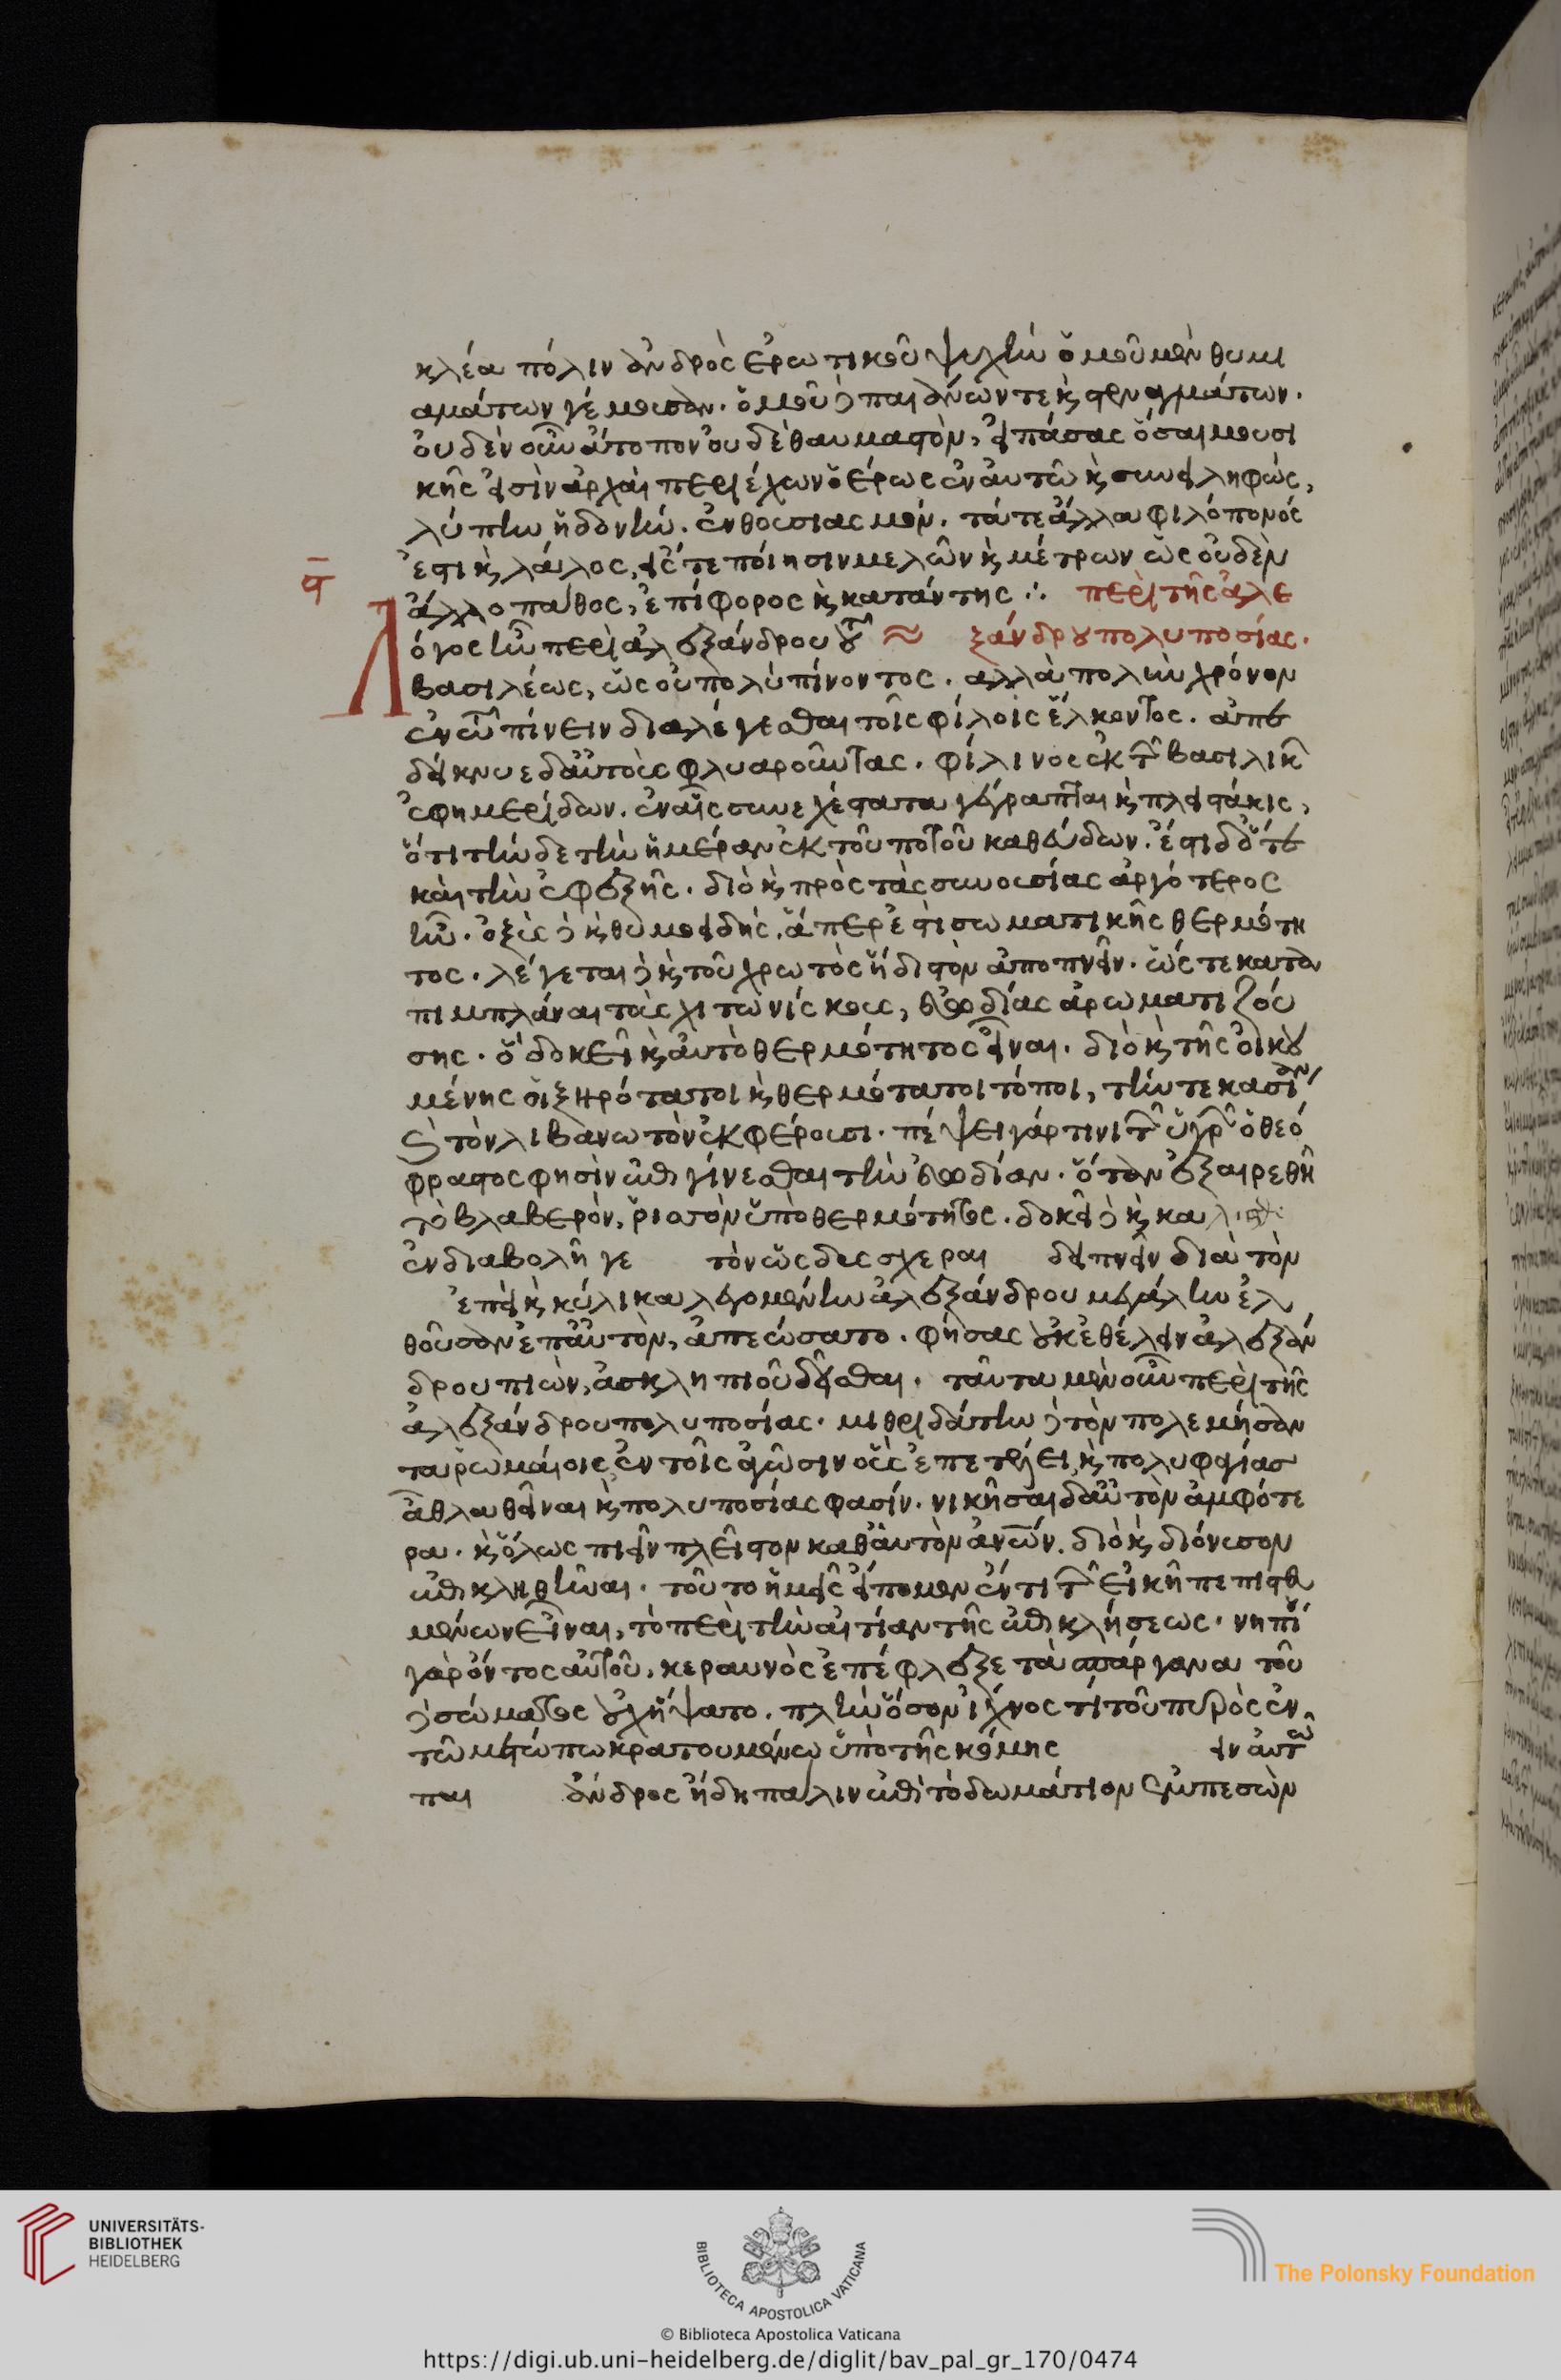 κλέα πόλιν ἀνδρὸς ἐρωτικοῦ ψυχὴν ὁμοῦ μὲν θυμι
αμάτων γέμουσαν. ὁμοῦ δὲ παιάνων τε καὶ στεναγμάτων.
οὐδὲν οὖν ἄτοπον οὐδὲ θαυμαστὸν, εἰ πάσας ὅσαι μουσι
κῆς εἰσὶν ἀρχαὶ περιέχων ὁ ἔρως ἐν αὑτῷ καὶ συνειληφὼς,
λύπην ἡδονὴν. ἐνθουσιασμὸν. τά τε ἄλλα φιλόπονός
ἐστι καὶ λάλος, εἴς τε ποίησιν μελῶν καὶ μέτρων ὡς οὐδὲν
ϛ
ἄλλο πάθος, ἐπίφορος καὶ κατάντης ∴ περὶ τῆς ἀλε
Λόγος ἦν περὶ ἀλεξάνδρου τοῦ ξάνδρου πολυποσίας.
βασιλέως, ὡς οὐ πολὺ πίνοντος. ἀλλὰ πολὺν χρόνον
ἐν τῷ πίνειν διαλέγεσθαι τοῖς φίλοις ἕλκοντος. ἀπε
δείκνυε δ' αὐτοὺς φλυαροῦντας. φίλινος ἐκ τῶν βασιλικῶν
ἐφημερίδων. ἐν αἷς συνεχέστατα γέγραπται καὶ πλειστάκις,
ὅτι τήνδε τὴν ἡμέραν ἐκ τοῦ ποτοῦ καθεύδων. ἔστι δ' ὅτε
καὶ τὴν ἐφεξῆς. διὸ καὶ πρὸς τὰς συνουσίας ἀργότερος
ἦν. ὀξὺς δὲ καὶ θυμοειδής. ἅπερ ἐστὶ σωματικῆς θερμότη
τος. λέγεται δὲ καὶ τοῦ χρωτὸς ἥδιστον ἀποπνεῖν. ὥστε κατα
πιμπλάναι τοὺς χιτωνίσκους, εὐωδίας ἀρωματιζού
σης. ὃ δοκεῖ καὶ αὐτὸ θερμότητος εἶναι. διὸ καὶ τῆς οἰκου
μένης οἱ ξηρότατοι καὶ θερμότατοι τόποι, τήν τε κασίαν
καὶ τὸν λιβανωτὸν ἐκφέρουσι. πέψει γάρ τινι τῶν ὑγρῶν ὁ θεό
φραστος φησὶν ἐπιγίνεσθαι τὴν εὐωδίαν. ὅταν ἐξαιρεθῇ
τὸ βλαβερὸν, ῥιστὸν ὑπὸ θερμότητος. δοκεῖ δὲ καὶ καλλισθ.
ἐν διαβολῇ γε τὸν ὡς δυσχεραι δειπνεῖν διὰ τὸν
ἐπεὶ καὶ κύλικα λεγομένην ἀλεξάνδρου μεγάλην ἐλ
θοῦσαν ἐπ' αὐτὸν, ἀπεώσατο. φήσας οὐκ ἐθέλειν ἀλεξάν
δρου πιὼν, ἀσκληπιοῦ δεῖσθαι. ταῦτα μὲν οὖν περὶ τῆς
ἀλεξάνδρου πολυποσίας. μιθριδάτην δὲ τὸν πολεμήσαν
τα ῥωμαίοις ἐν τοῖς ἀγῶσιν οὓς ἐπετέλει, καὶ πολυφαγίας
ἆθλα θεῖναι καὶ πολυποσίας φασίν. νικῆσαι δ' αὐτὸν ἀμφότε
ρα. καὶ ὅλως πιεῖν πλεῖστον καθ' αὑτὸν ἀνθρώπων. διὸ καὶ διόνυσον
ἐπικληθῆναι. τοῦτο ἡμεῖς εἴπομεν ἕν τι τῶν εἰκῆ πεπιστευ
μένων εἶναι, τὸ περὶ τὴν αἰτίαν τῆς ἐπικλήσεως. νηπίου
γὰρ ὄντος αὐτοῦ, κεραυνὸς ἐπέφλεξε τὰ σπάργανα τοῦ
δὲ σώματος οὐχ ἥψατο. πλὴν ὅσον ἴχνος τί τοῦ πυρὸς ἐν
τῷ μετώπῳ κρατουμένῳ ὑπὸ τῆς κόμης ειν αὐτῶ
παι ἀνδρος ἤδη πάλιν ἐπὶ τὸ δωμάτιον ἐμπεσὼν
UNIVERSITÄTS-
BIBLIOTHEK
HEIDELBERG
BIBLIOTECA APOSTOLICA VATICANA
The Polonsky Foundation
© Biblioteca Apostolica Vaticana
https://digi.ub.uni-heidelberg.de/diglit/bav_pal_gr_170/0474